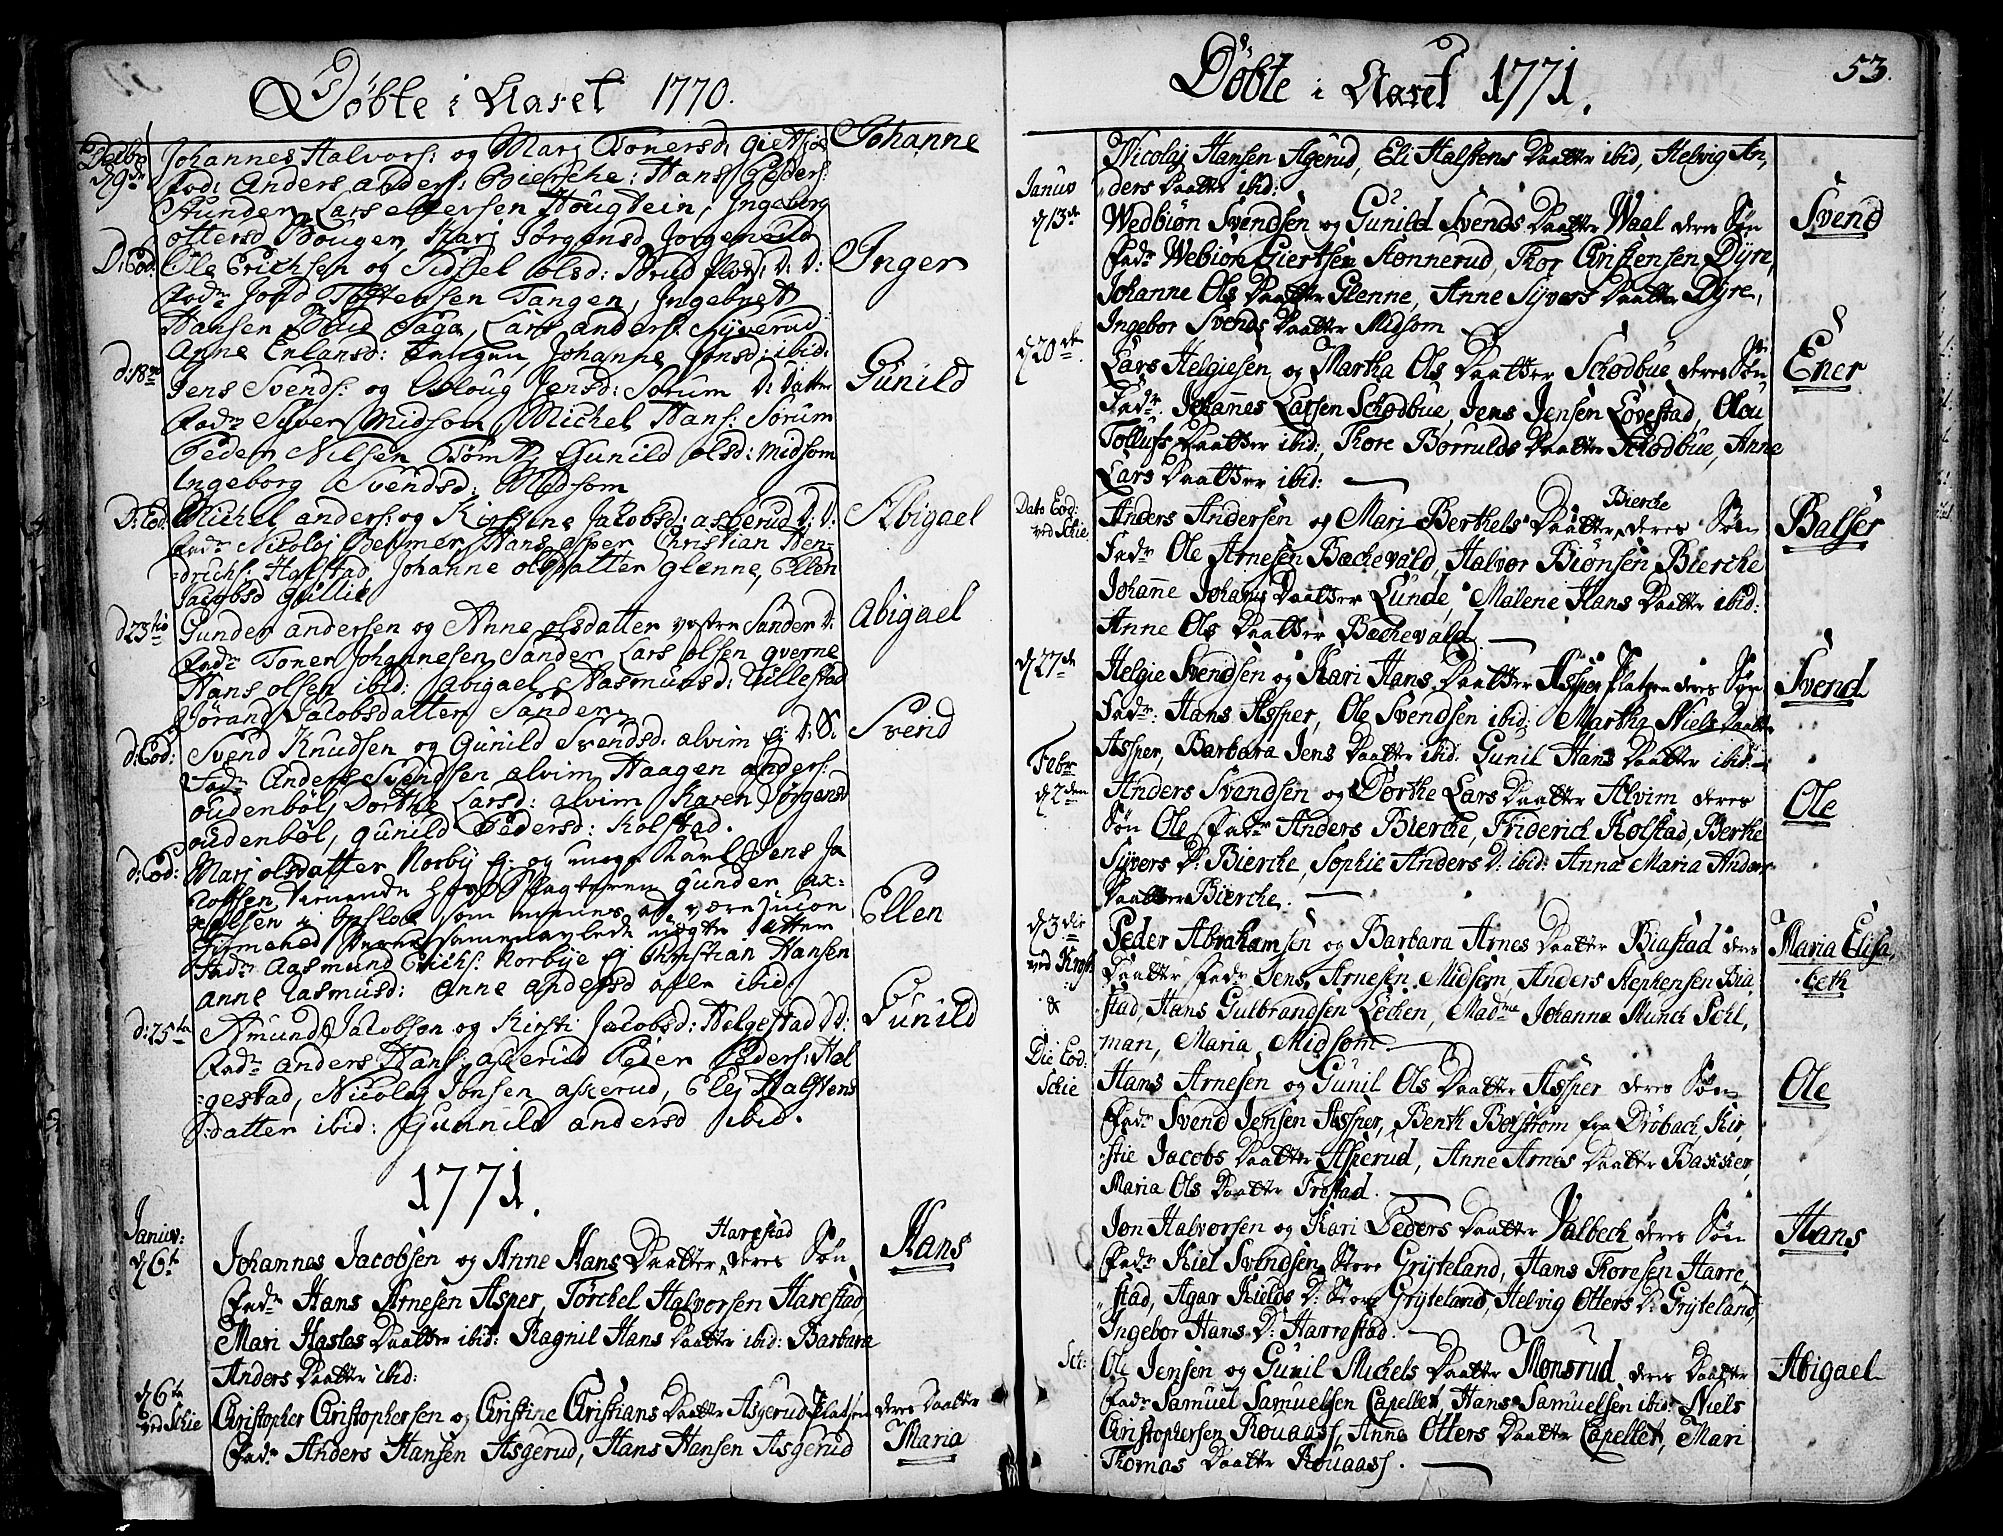 Døbte i Aaret 1770.
Decbr Johannes Halvors: og Mari Tonersd: Johanne
d 9de Fad: Anders Anders: Biercke: Hans Peders:
Lars Hougstein, Ingeborg
Ottersd Bougen, Kari Jørgensd Jorgen
D: Eod: Ole Erichsen og Sidsel Olsd: D: D: Inger
Fadr Tostensen Tangen, Ingebret
Hansen Lars Anders: Syverud
Anne Erlansd: Tangen, Johanne Jonsd: ibid:
d: 18de Jens Svends: og Aaloug Jensd: Sorum D: Datter Gunild
Fadr Syver Midsom, Michel Hans: Sorum
Peder Nilsen Tømt, Gunild Olsd: Midsom
Ingeborg Svendsd: Midsom
D: Eod: Michel Anders: og Kirstine Jacobsd: Asgerud D: D: Abigael
Fadr Nikolaj Betmer, Hans Asper Christian Hen-
drichs: Halstad, Johanne Olsdatter Glenne, Ellen
Jacobsd Grillie
d 23tio Gunder Andersen og Anne Olsdatter Vestre Sander D: Abigael
Fadr Toner Johannesen Sander Lars Olsen Qverne
Hans Olsen ibid: Abigael Aasmunsd: Ullestad
Jørand Jacobsdatter Sander
d: Eod: Svend Knudsen og Gunild Svendsd: Alvim D: S: Svend
Fadr Anders Svendsen Alvim Haagen Anders:
Oudenbøl, Dorthe Larsd: Alvim Karen Jørgensd
Oudenbøl, Gunild Pedersd: Kolstad.
d: Eod: Mari Olsdatter Norby og unge Karl Jens Ja
Tienende Gunder Ax: Ellen
helsen i Opsloe som
sammenavlede uægte Datter
Fadr Aasmund Erichs: Norbye Christian Hansen
Anne Rasmusd: Anne Andersd ibid:
d: 25ta Amund Jacobson og Kirsti Jacobsd: Helgestad D: Gunild
Fadr Anders Hans: Askerud Peder Peders: Hel
gestad, Nicolaj Jonsen Askerud, Elej Halstens
datter ibid: Gunnild Andersd ibid.
1771.
Januv:
d 6te Johannes Jacobsen og Anne Hans Daatter Harestad deres Søn Hans
Fadr Hans Arnesen Asper, Torchel Halvorsen Harestad
Mari Hasles Daatter ibid: Ragnil Hans Daatter ibid: Barbara
Anders Daatter ibid:
d 6te Christopher Christophersen og Christine Christians Daatter Asgerud Platsen deres Daatter
ved Schie Fadr Anders Hansen Asgerud, Hans Hansen Asgerud Maria
Døbte i Aaret 1771. 53.
Nicolaj Hansen Agerud, Eli Halstens Daatter ibid, Helvig An,
Januv ders Daatter ibid:
d 13de Wedbiøn Svendsen og Gunild Svends Daatter Wael deres Søn Svend
Fadr Webiøn Giertsen Stonnerud, Thor Christensen Dyre,
Johanne Ols Daatter Glenne, Anne Syvers Daatter Dyre,
Ingebor Svends Daatter Midsom
d 20de Lars Helgiesen og Martha Ols Daatter Schodbue deres Søn Ener
Fadr: Johannes Larsen Schodbue, Jens Jensen Løvestad, Olou
Tollufs Daatter ibid:, Thore Borrulds Daatter Schodbue, Anne
Lars Daatter ibid:
Dato Eod: Anders Andersen og Mari Berthels Daatter Biercke deres Søn Balser
ved Schie Fadr Ole Arnesen Bæchevald, Halvor Biønsen Biercke
Johanne Johans Daatter Lunde, Malene Hans Daatter ibid:
Anne Ols Daatter Bæchevald
d 27de Helgie Svendsen og Kari Hans Daatter Assper Platsen deres Søn Svend
Fadr: Hans Assper, Ole Svendsen ibid: Martha Niels Daatter
Assper, Barbara Jens Daatter ibid: Gunil Hans Daatter ibid:
Febr Anders Svendsen og Dorthe Lars Daatter Alvim deres Ole
d 2den Søn Ole Fadr Anders Biercke, Friderich Kolstad, Berthe
Syvers D: Biercke, Sophie Anders D: ibid: Anna Maria Anders
Daatter Biercke.
d 3die Peder Abrahamsen og Barbara Arnes Daatter Biastad deres Maria Elisa,
ved Krog: Daatter Fadr Jens Arnesen Midsem, Anders Stephensen Bia beth
stad, Hans Gulbrandsen Lechen, Madme Johanna Munch Pehl,
man, Maria Midsom
Die Eod: Hans Arnesen og Gunil Ols Daatter Assper deres Søn Ole
Schie Fadr Svend Jensen Assper, Benth Bolstrøm fra Drøbach, Kir,
stie Jacobs Daatter Asperud, Anne Arnes Daatter Bassier,
Maria Ols Daatter Frostad.
Jon Halvorsen og Kari Peders Daatter Valbech deres Søn Hans
Fadr Kiel Svendsen Store Gryteland, Hans Thoresen Harre,
stad, Agar Kields D: Store Gryteland, Helvig Otters D: Gryteland,
Ingebor Hans D: Harrestad.
Sch: Ole Jensen og Gunil Michels Daatter Monsrud deres Daatter Abigael
Fadr Samuel Samuelsen Capellet, Hans Samuelsen ibid: Niels
Christophersen Rouaass, Anne Otters Daatter Capellet, Mari
Thomas Daatter Rouaass.